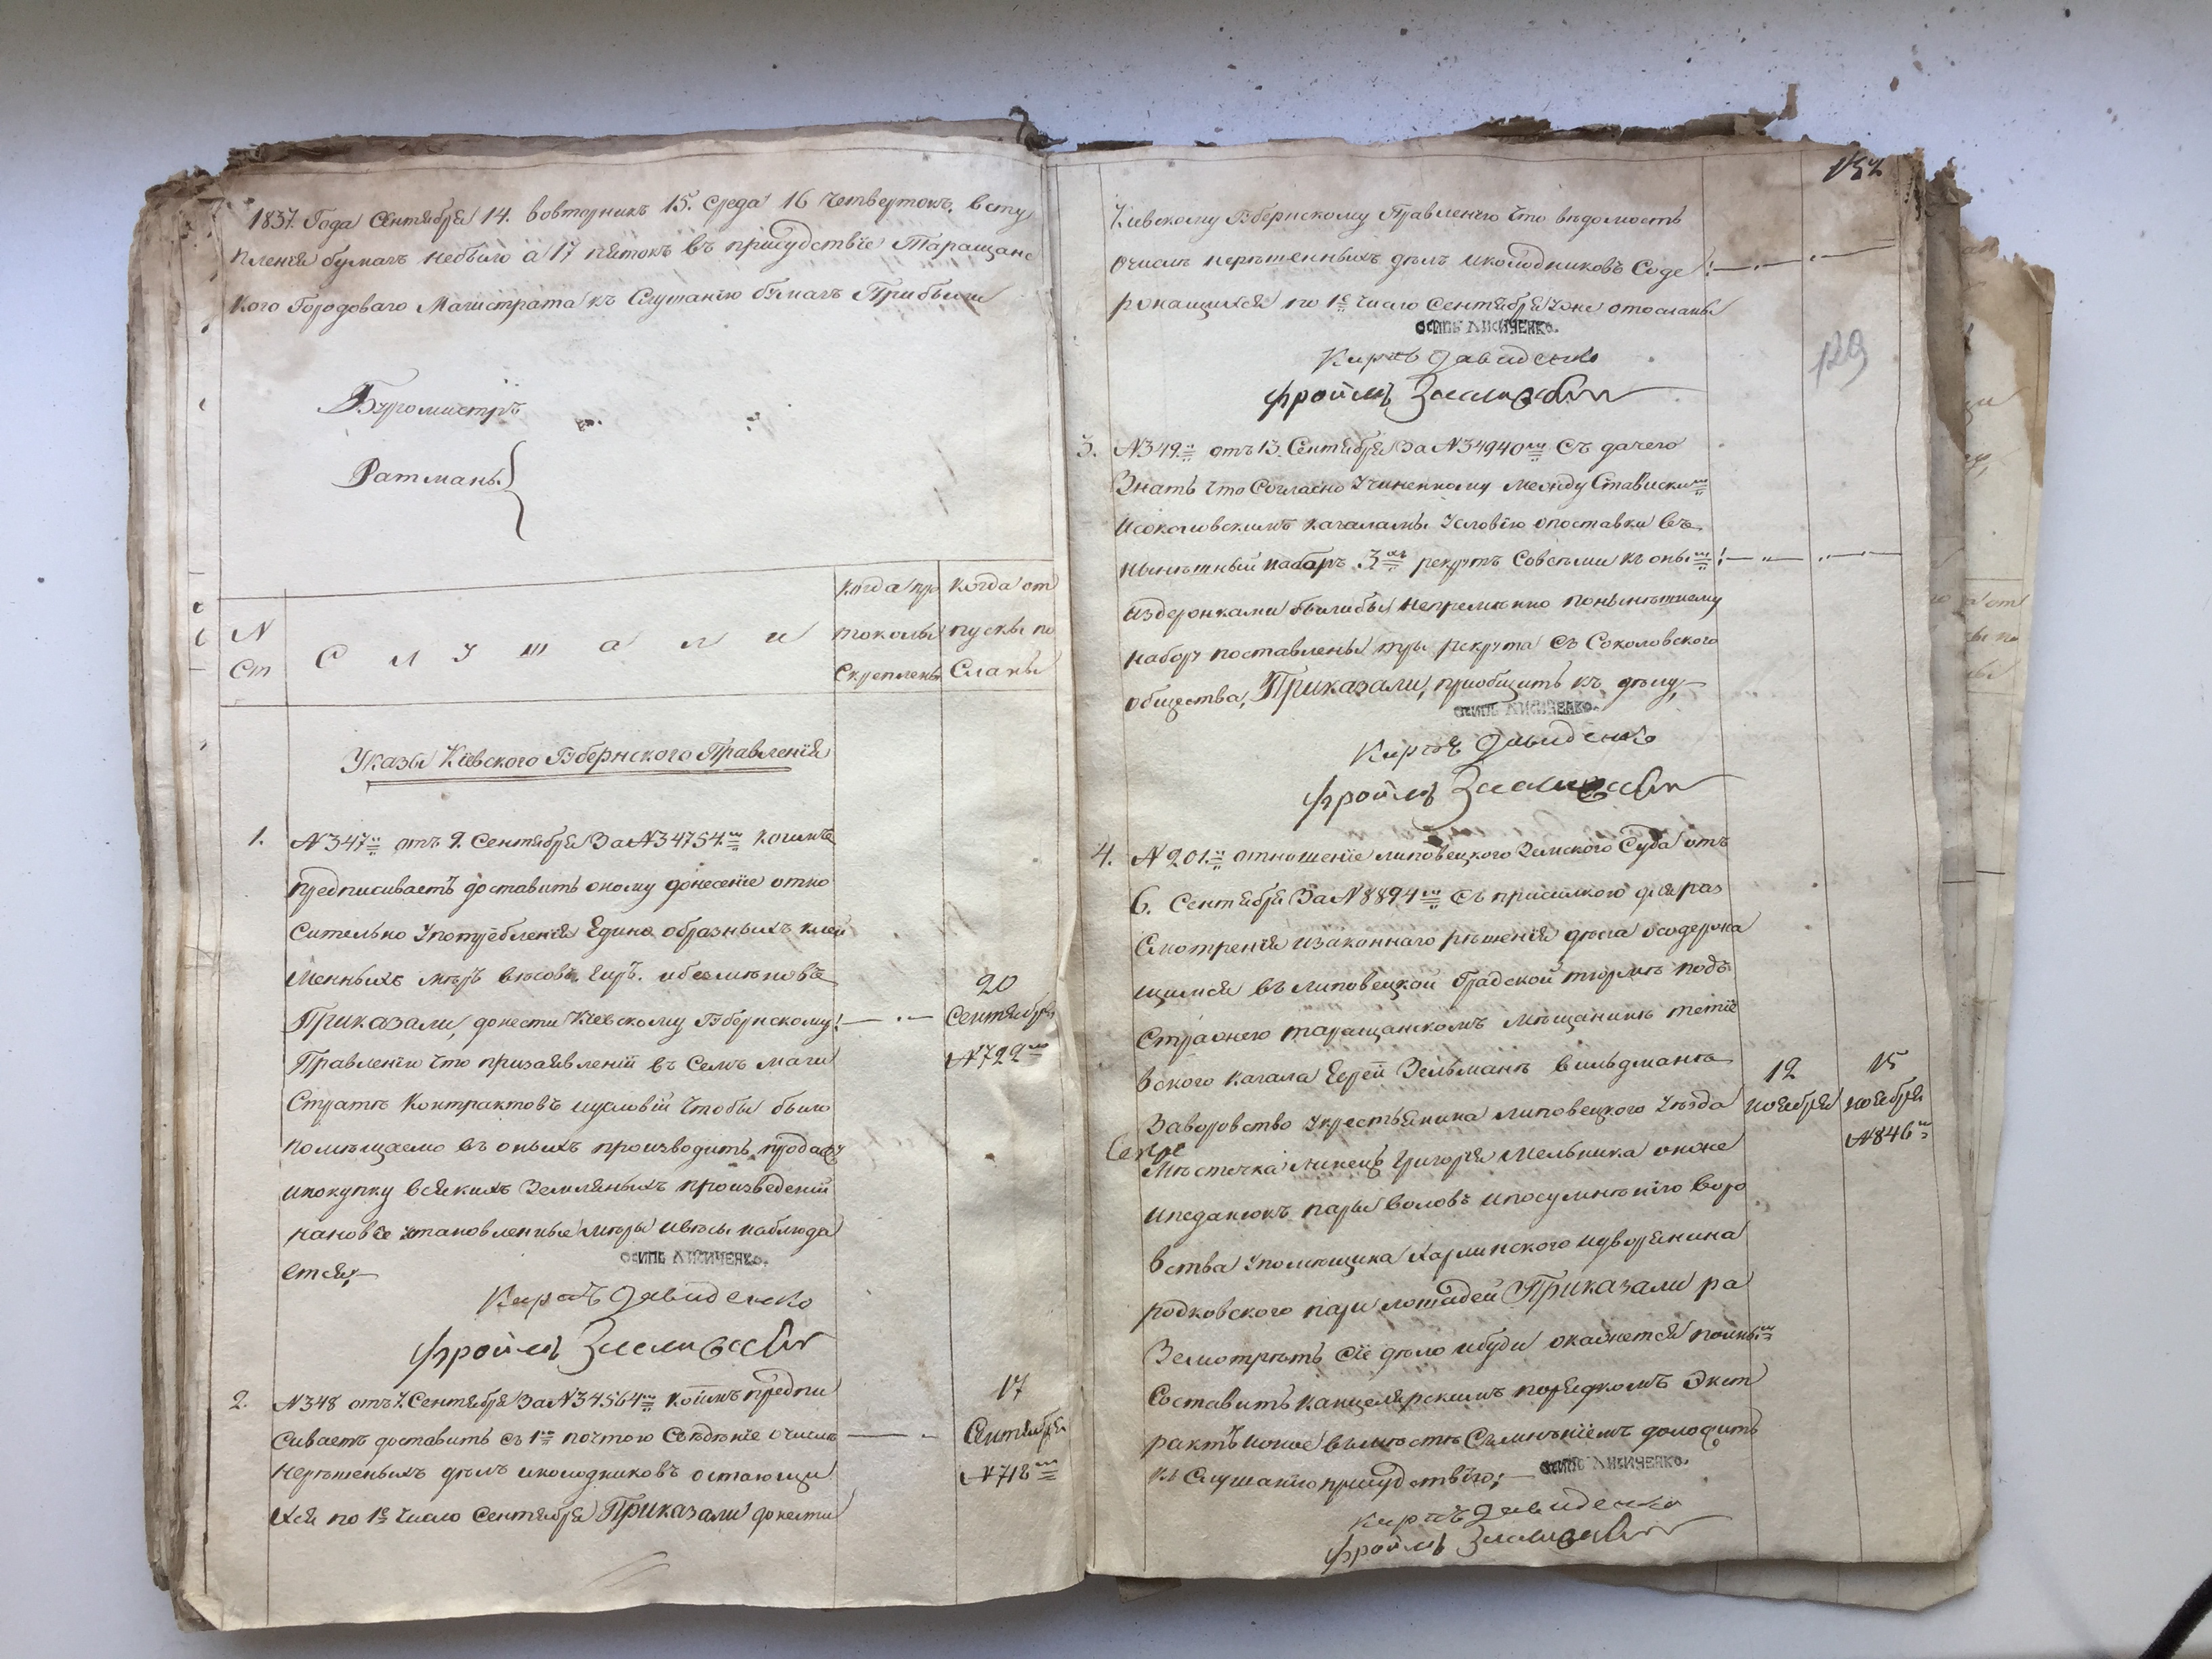 1837. Года Сентября 14. вовторникъ 15. Среда 16 Четвертокъ. всту
пленія бумагъ небыло а 17 пятокъ въ присудствіе Таращанс
кого Городоваго Магистрата къ Слушанію бумагъ Прибыли
Бургомистръ
Ратманы
N Ст
С л у ш а л и
Когда про
токолы
Скреплены
Когда от
пуски по
Сланы
Указы Кіевского Губернского Правленія
1. N 347 отъ 9. Сентября За N 34754 коимъ
предписываетъ доставить оному донесеніе отно
сительно Употребленія Едино образныхъ клей
менныхъ мѣръ вѣсовъ гирь.
Приказали, донести Кіевскому Губернскому
Правленію что призаявленій въ Семъ Маги
стратѣ Контрактовъ иусловій чтобы было
помѣщаемо въ оныхъ производить продажу
ипокупку всякихъ Земляныхъ произведеній
нановѣе установленные мѣры ивѣсы наблюда
ется,
20
Сентября
N 722
ОСИПЪ ЛИСИЧЕНКО.
Карпъ Давиденко
Фроимъ
2. N 348 отъ 7. Сентября За N 34564 коимъ предпи
сиваетъ доставить съ 1ю почтою Свѣдѣніе очислѣ
нерѣшеныхъ дѣлъ иколодниковъ остающи
хся по 1е Число Сентября Приказали донести
17
Сентября
N 718
152
129
Кіевскому Губернскому Правленію Что вѣдомость
очислѣ нерѣшенныхъ дѣлъ иколодниковъ Соде
ржащихся по 1е Число Сентября уже отосланы
ОСИПЪ ЛИСИЧЕНКО.
Карпъ Давиденко
Фроимъ
3. N 349 отъ 13. Сентября За N 34940 Съ дачею
Знать что Согласно Учиненному между Стависким
исоколовскимъ кагаламы Условію опоставки въ
нынѣшный наборъ 3хъ рекрутъ Совсѣми къ оным
издержками былибы непремѣнно понынѣшнему
набору поставлены тры рекрута Съ Соколовского
общества, Приказали, приобщить къ дѣлу,
ОСИПЪ ЛИСИЧЕНКО.
Карпъ Давиденко
Фроимъ
4. N 201 отношеніе липовецкого Земского Суда отъ
6. Сентября За N 8894 Съ присилкою для раз
смотренія изаконнаго рѣшенія дѣла осодержа
щимся въ липовецкой Градской тюрмѣ подъ
Стражею таращанскомъ мѣщанинѣ тетіе
вского кагала Еврей Зельманѣ вильдманѣ
Заворовство Укрестьянина липовецкого Уѣзда
Мѣстечка линецъ Григорія Мельника онже
пары воловъ ипосумнѣнію воро
вства Упомѣщика Харлинского идворянина
родковского пари лошадей Приказали ра
Земотрѣть Сіе дѣло ибуди окажется полным
Составить канцелярскимъ порядкомъ Экст
рактъ
къ Слушанію присудствію;
12
ноября
15
ноября
N 846
ОСИПЪ ЛИСИЧЕНКО.
Карпъ Давиденко
Фроимъ